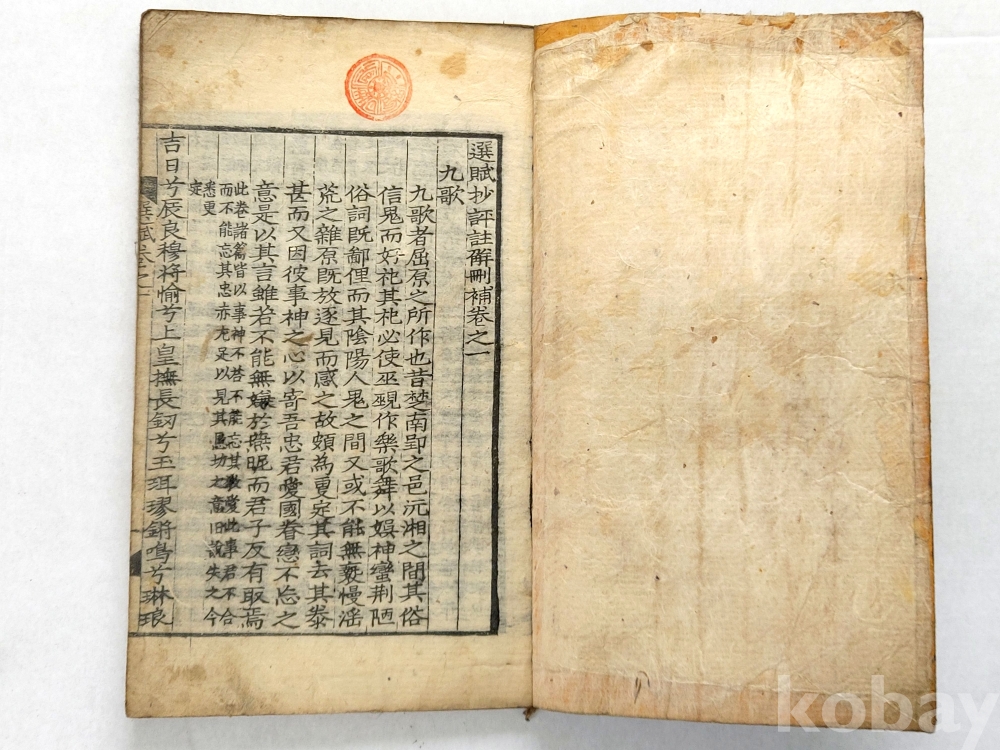 選賦抄評註解刪補卷之一
九歌
九歌者屈原之所作也昔楚南郢之邑沅湘之間其俗
信鬼而好祀其祀必使巫覡作樂歌舞以娛神蠻荊陋
俗詞既鄙俚而其陰陽人鬼之間又或不能無褻慢淫
荒之雜原既放逐見而感之故頗為更定其詞去其泰
甚而又因彼事神之心以寄吾忠君愛國眷戀不忘之
意是以其言雖若不能無嫌於燕昵而君子反有取焉
此卷諸篇皆以事神不答不能忘其敬愛此事君不合
而不能忘其忠赤尤足以見其懇切之意旧說失之今
悉更
定
吉日兮辰良穆將愉兮上皇撫長劒兮玉珥璆鏘鳴兮琳琅
選賦卷之一
kobay